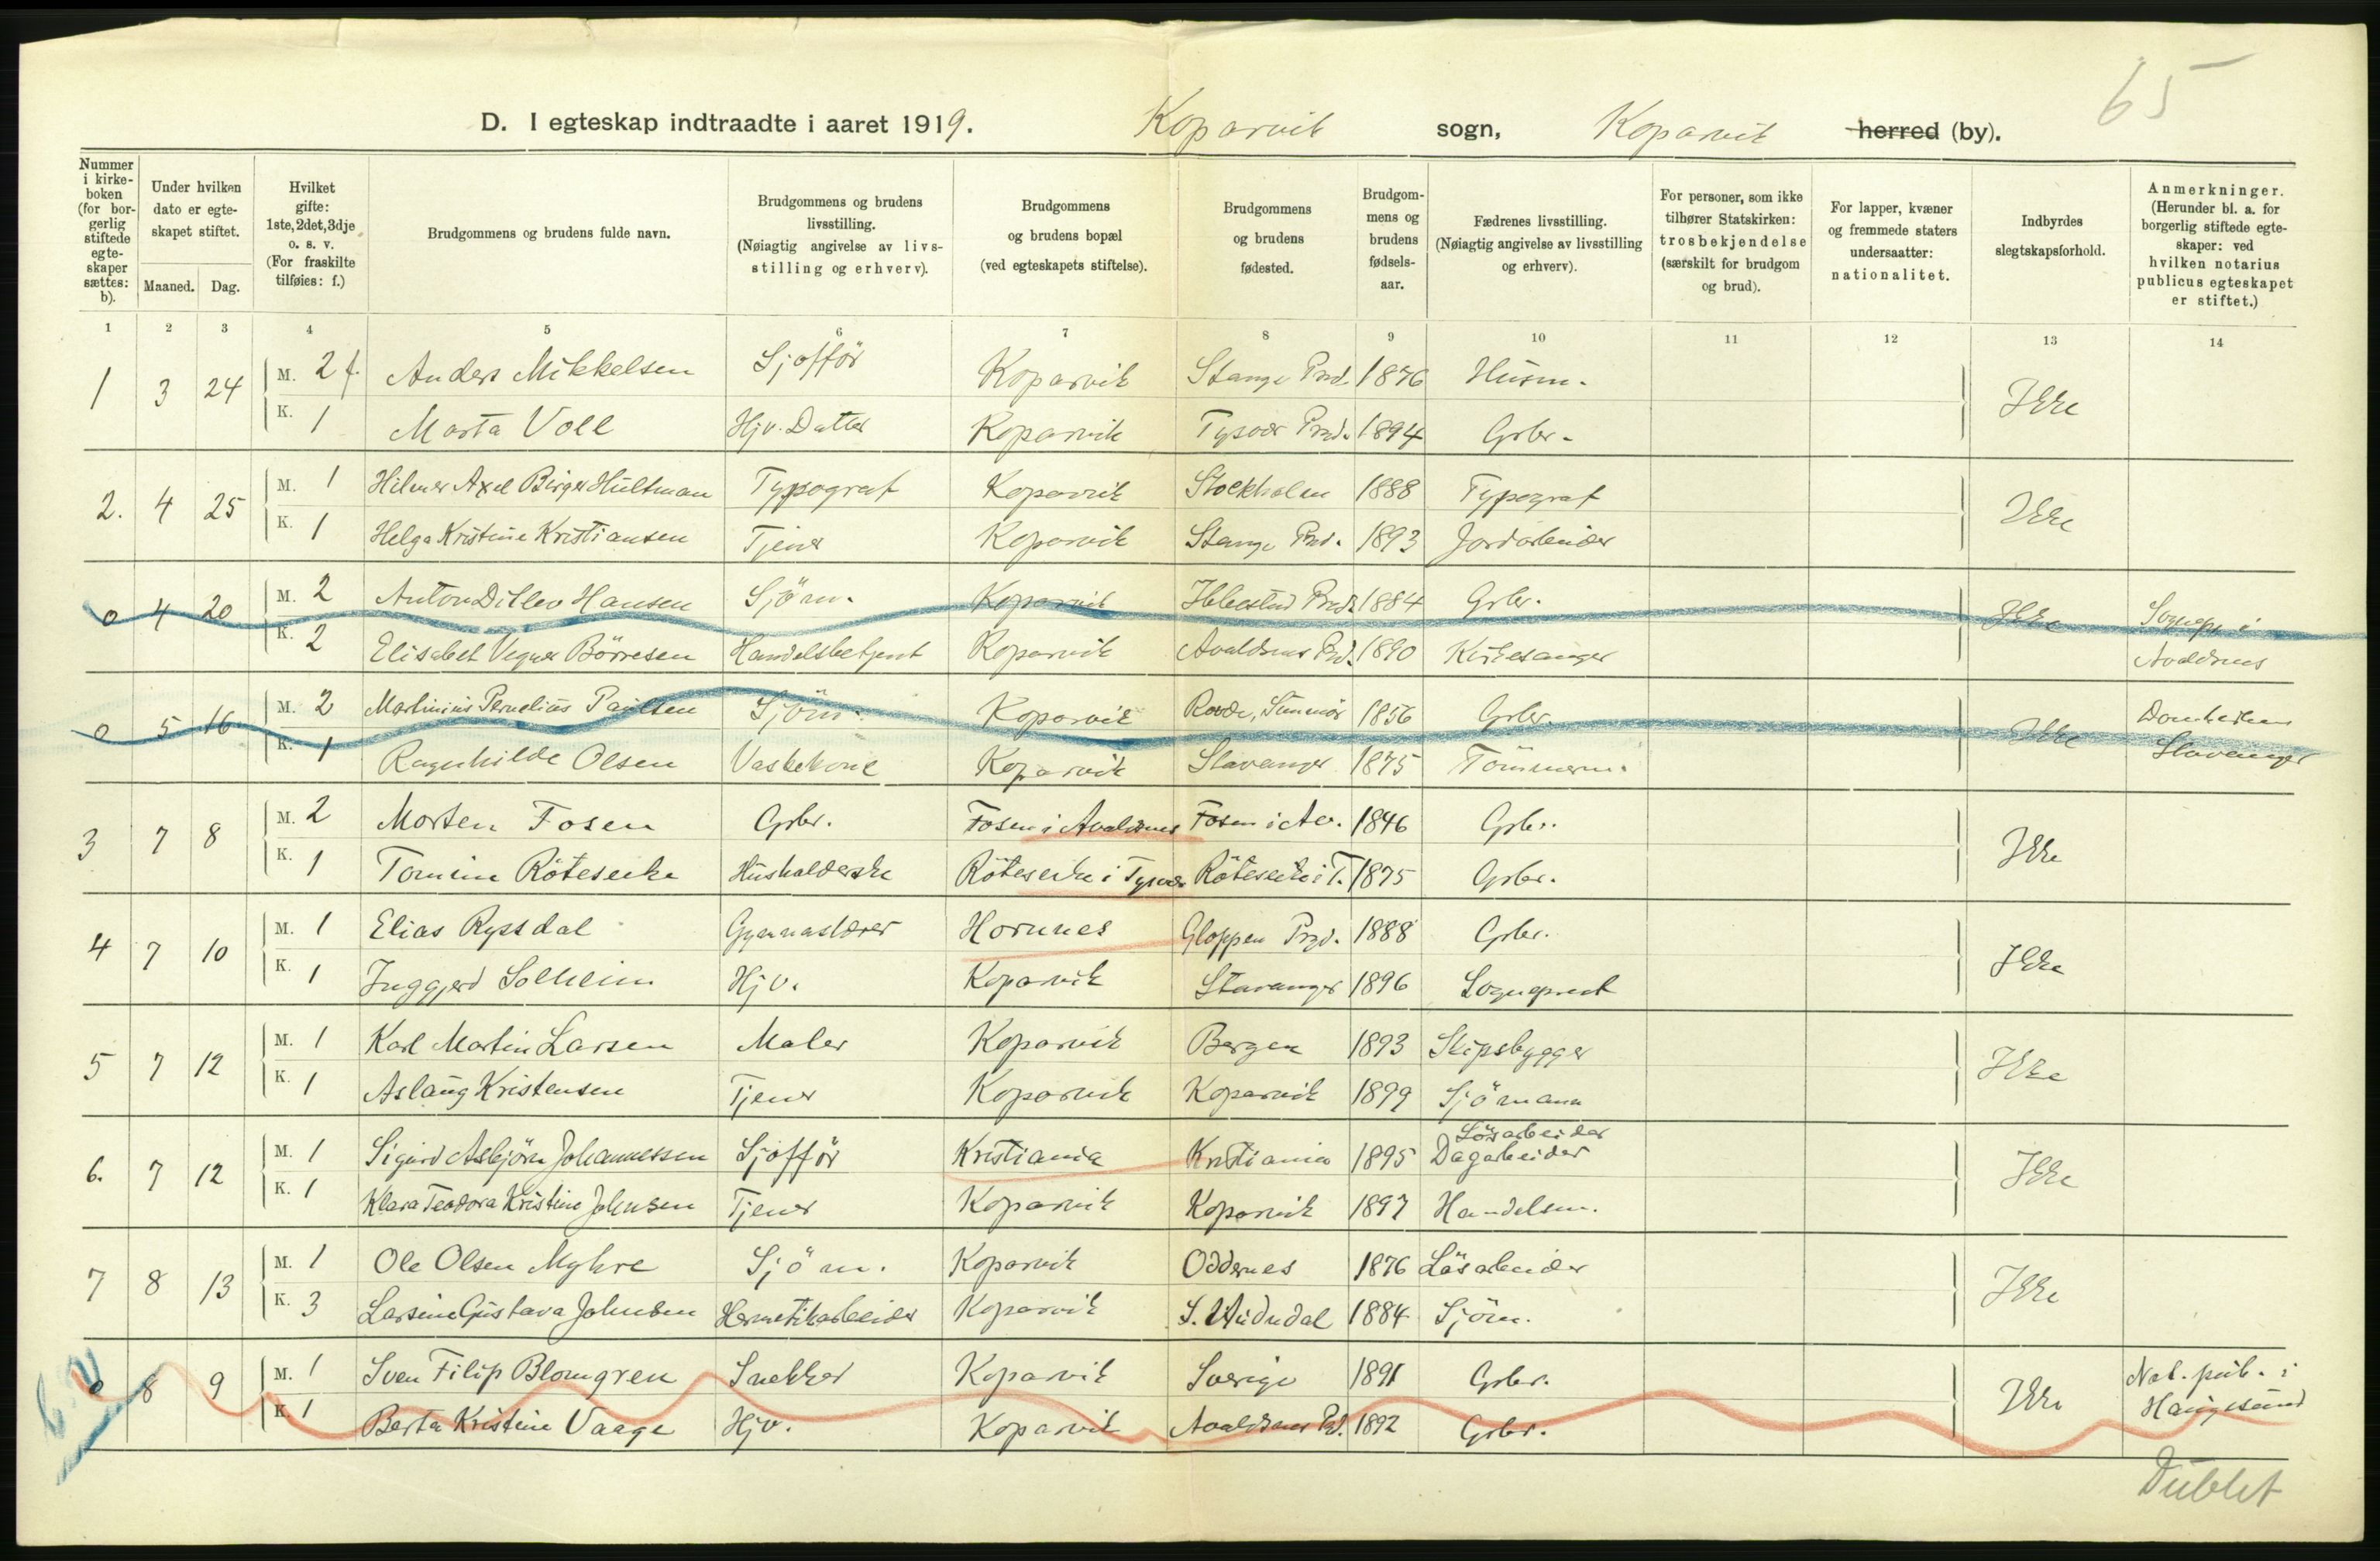 65
D. I egteskap indtraadte i aaret 1919. Kopervik sogn, Kopervik herred (by).
Nummer i kirkeboken (for borgerlig stiftede egteskaper sættes: b).
Under hvilken dato er egteskapet stiftet.
Maaned. Dag.
Hvilket gifte: 1ste, 2det, 3dje o. s. v. (For fraskilte tilføies: f.)
Brudgommens og brudens fulde navn.
Brudgommens og brudens livsstilling. (Nøiagtig angivelse av livsstilling og erhverv).
Brudgommens og brudens bopæl (ved egteskapets stiftelse).
Brudgommens og brudens fødested.
Brudgommens og brudens fødselsaar.
Fædrenes livsstilling. (Nøiagtig angivelse av livsstilling og erhverv).
For personer, som ikke tilhører Statskirken: trosbekjendelse (særskilt for brudgom og brud).
For lapper, kvæner og fremmede staters undersaatter: nationalitet.
Indbyrdes slegtskapsforhold.
Anmerkninger. (Herunder bl. a. for borgerlig stiftede egteskaper: ved hvilken notarius publicus egteskapet er stiftet.)
1 2 3 4 5 6 7 8 9 10 11 12 13 14
1 3 24 M. 2 f. Anders Mikkelsen Sjofför Kopervik Stange Prd. 1876 Husm. Ikke
K. 1 Marta Voll Hjv. Datter Kopervik Tysvær Prd. 1894 Grbr.
2. 4 25 M. 1 Hilmer Axel Birger Hultman Typograf Kopervik Stockholm 1888 Typograf Ikke
K. 1 Helga Kristine Kristiansen Tjener Kopervik Stange Prd. 1893 Jordarbeider
0 4 20 M. 2 Anton Ditlev Hansen Sjöm. Kopervik Ibbestad Prd. 1884 Grbr. Ikke Sognepr. i
K. 2 Elisabet Vegner Börresen Handelsbetjent Kopervik Avaldsnes Prd. 1890 Kirkesanger Avaldsnes
0 5 16 M. 2 Martinius Pernelius Paulsen Sjöm. Kopervik Rovde, Sunmör 1856 Grbr. Ikke Domkirken
K. 1 Ragnhilde Olsen Vaskekone Kopervik Stavanger 1875 Tömmerm. Stavanger
3 7 8 M. 2 Morten Fosen Grbr. Fosen i Avaldsnes Fosen i Av. 1846 Grbr. Ikke
K. 1 Tomine Röteseike Husholderske Röteseike i Tysvær Röteseike i T. 1875 Grbr.
4 7 10 M. 1 Elias Ryssdal Gymnaslærer Hornnes Gloppen Prgd. 1888 Grbr. Ikke
K. 1 Inggjerd Solheim Hjv. Kopervik Stavanger 1896 Sogneprest
5 7 12 M. 1 Karl Martin Larsen Maler Kopervik Bergen 1893 Skipsbygger Ikke
K. 1 Aslaug Kristensen Tjener Kopervik Kopervik 1899 Sjömann
6. 7 12 M. 1 Sigurd Asbjörn Johannessen Sjofför Kristiania Kristiania 1895 Lösarbeider Dagarbeider Ikke
K. 1 Klara Teodora Kristine Johnsen Tjener Kopervik Kopervik 1897 Handelsm.
7 8 13 M. 1 Ole Olsen Myhre Sjöm. Kopervik Oddernes 1876 Lösarbeider Ikke
K. 3 Larsine Gustava Johnsen Hermetikarbeider Kopervik S. Undal 1884 Sjöm.
0 8 9 M. 1 Sven Filip Blomgren Snekker Kopervik Sverige 1891 Grbr. Ikke Not. pub. i
K. 1 Berta Kristine Vaage Hjv. Kopervik Avaldsnes Prd. 1892 Grbr. Haugesund
Dublet